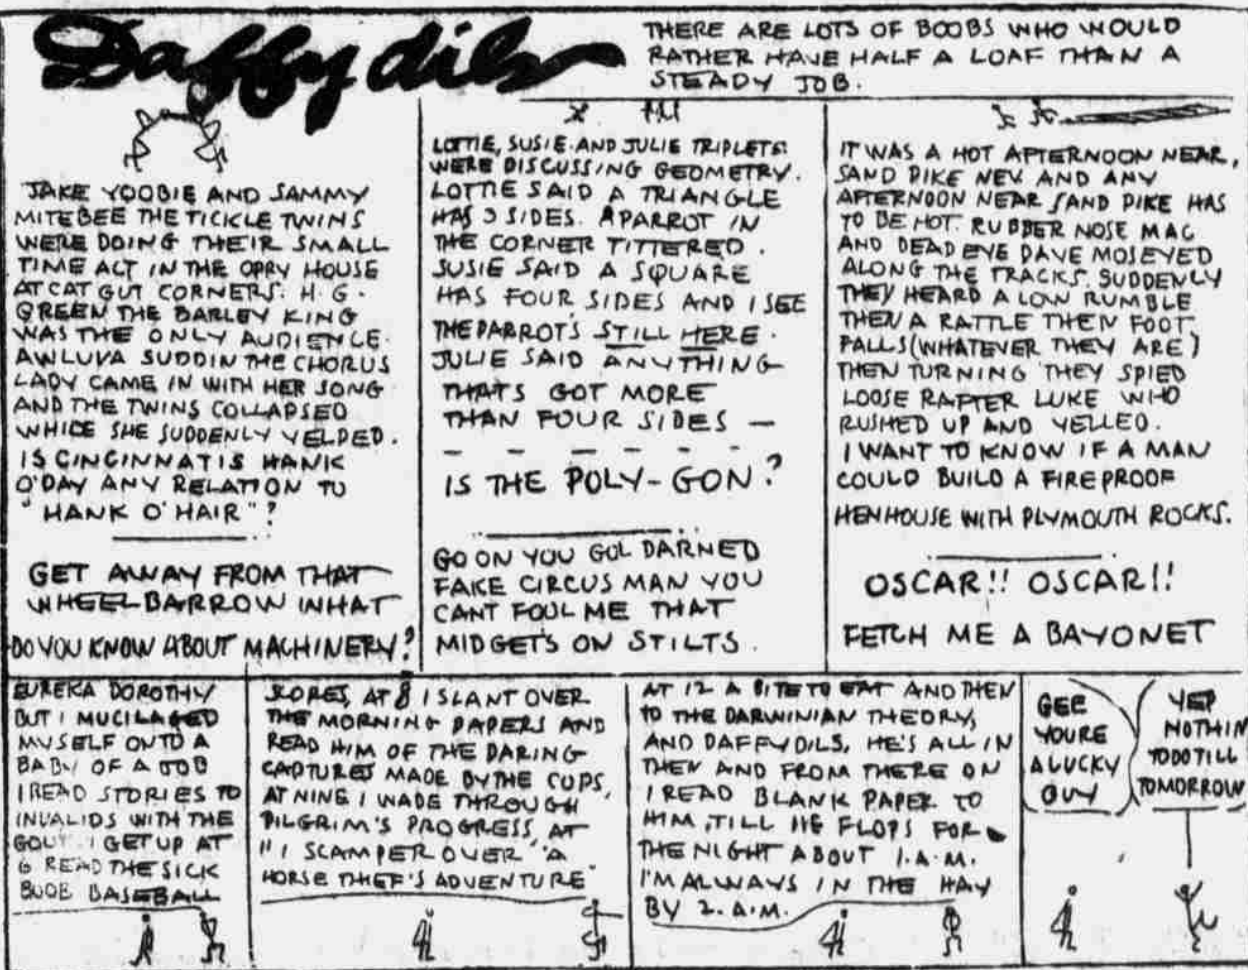 Daffydils
THERE ARE LOTS OF BOOBS WHO WOULD
RATHER HAVE HALF A LOAF THAN A
STEADY JOB.
JAKE YOOBIE AND SAMMY
MITEBEE THE TICKLE TWINS
WERE DOING THEIR SMALL
TIME ACT IN THE OPRY HOUSE
AT CAT GUT CORNERS. H.G.
GREEN THE BARLEY KING
WAS THE ONLY AUDIENCE.
AWLUVA SUDDIN THE CHORUS
LADY CAME IN WITH HER SONG
AND THE TWINS COLLAPSED
WHILE SHE SUDDENLY YELPED.
IS CINCINNATIS HANK
O'DAY ANY RELATION TO
"HANK O'HAIR"?
GET AWAY FROM THAT
WHEELBARROW WHAT
DO YOU KNOW ABOUT MACHINERY?
LOTTIE, SUSIE AND JULIE TRIPLETS
WERE DISCUSSING GEOMETRY.
LOTTIE SAID A TRIANGLE
HAS 3 SIDES. A PARROT IN
THE CORNER TITTERED.
SUSIE SAID A SQUARE
HAS FOUR SIDES AND I SEE
THE PARROT'S STILL HERE.
JULIE SAID ANYTHING
THATS GOT MORE
THAN FOUR SIDES —
— — — — — —
IS THE POLY-GON?
GO ON YOU GOL DARNED
FAKE CIRCUS MAN YOU
CANT FOUL ME THAT
MIDGET'S ON STILTS.
IT WAS A HOT AFTERNOON NEAR,
SAND PIKE NEV. AND ANY
AFTERNOON NEAR SAND PIKE HAS
TO BE HOT. RUBBER NOSE MAC
AND DEAD EYE DAVE MOSEYED
ALONG THE TRACKS. SUDDENLY
THEY HEARD A LOW RUMBLE
THEN A RATTLE THEN FOOT
FALLS (WHATEVER THEY ARE)
THEN TURNING THEY SPIED
LOOSE RAFTER LUKE WHO
RUSHED UP AND YELLED.
I WANT TO KNOW IF A MAN
COULD BUILD A FIREPROOF
HENHOUSE WITH PLYMOUTH ROCKS.
OSCAR!! OSCAR!!
FETCH ME A BAYONET
EUREKA DOROTHY
BUT I MUCILAGED
MYSELF ONTO A
BABY OF A JOB
I READ STORIES TO
INVALIDS WITH THE
GOUT. I GET UP AT
6 READ THE SICK
BOOB BASEBALL
SCORES, AT 8 I SLANT OVER
THE MORNING PAPERS AND
READ HIM OF THE DARING
CAPTURES MADE BY THE COPS.
AT NINE I WADE THROUGH
PILGRIM'S PROGRESS, AT
11 I SCAMPER OVER "A
HORSE THIEF'S ADVENTURE"
AT 12 A BITE TO EAT AND THEN
TO THE DARWINIAN THEORY,
AND DAFFYDILS. HE'S ALL IN
THEN AND FROM THERE ON
I READ BLANK PAPER TO
HIM, TILL HE FLOPS FOR
THE NIGHT ABOUT 1.A.M.
I'M ALWAYS IN THE HAY
BY 2.A.M.
GEE
YOURE
A LUCKY
GUY
YEP
NOTHIN
TO DO TILL
TOMORROW